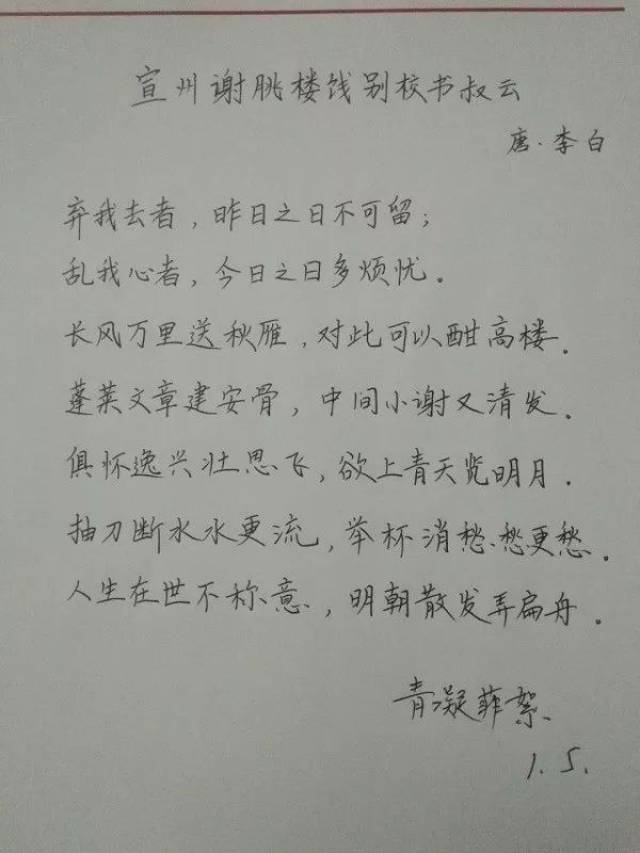 宣州谢朓楼饯别校书叔云
唐·李白
弃我去者，昨日之日不可留；
乱我心者，今日之日多烦忧。
长风万里送秋雁，对此可以酣高楼。
蓬莱文章建安骨，中间小谢又清发。
俱怀逸兴壮思飞，欲上青天览明月。
抽刀断水水更流，举杯消愁愁更愁。
人生在世不称意，明朝散发弄扁舟。
青凝菲絮
1.5.